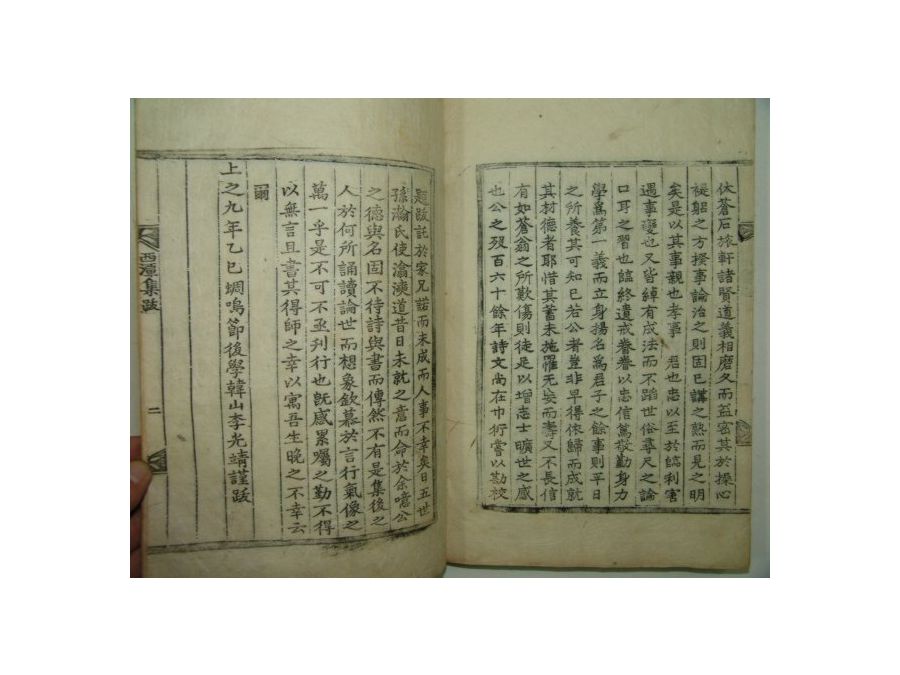 休蒼石旅軒諸賢道義相磨久而益密其於操心
褆躬之方揆事論治之則固已講之熟而見之明
矣是以其事親也孝事 君也忠以至於臨利害
遇事變也又皆綽有成法而不蹈世俗尋尺之論
口耳之習也臨終遺戒眷眷以忠信篤敬勤身力
學爲第一義而立身揚名爲君子之餘事則平日
之所養其可知已若公者豈非早得依歸而成就
其材德者耶惜其蓄未施罹无妄而壽又不長信
有如蒼翁之所歎傷則徒足以增志士曠世之感
也公之歿百六十餘年詩文尚在巾衍嘗以勘校
題跋託於家兄諾而未成而人事不幸矣日五世
孫瀚氏使瀹演道昔日未就之意而命於余噫公
之德與名固不待詩與書而傳然不有是集後之
人於何所誦讀論世而想象欽慕於言行氣像之
萬一乎是不可不亟刊行也旣感累囑之勤不得
以無言且書其得師之幸以寓吾生晚之不幸云
爾
上之九年乙巳蜩鳴節後學韓山李光靖謹跋
西潭集跋 二